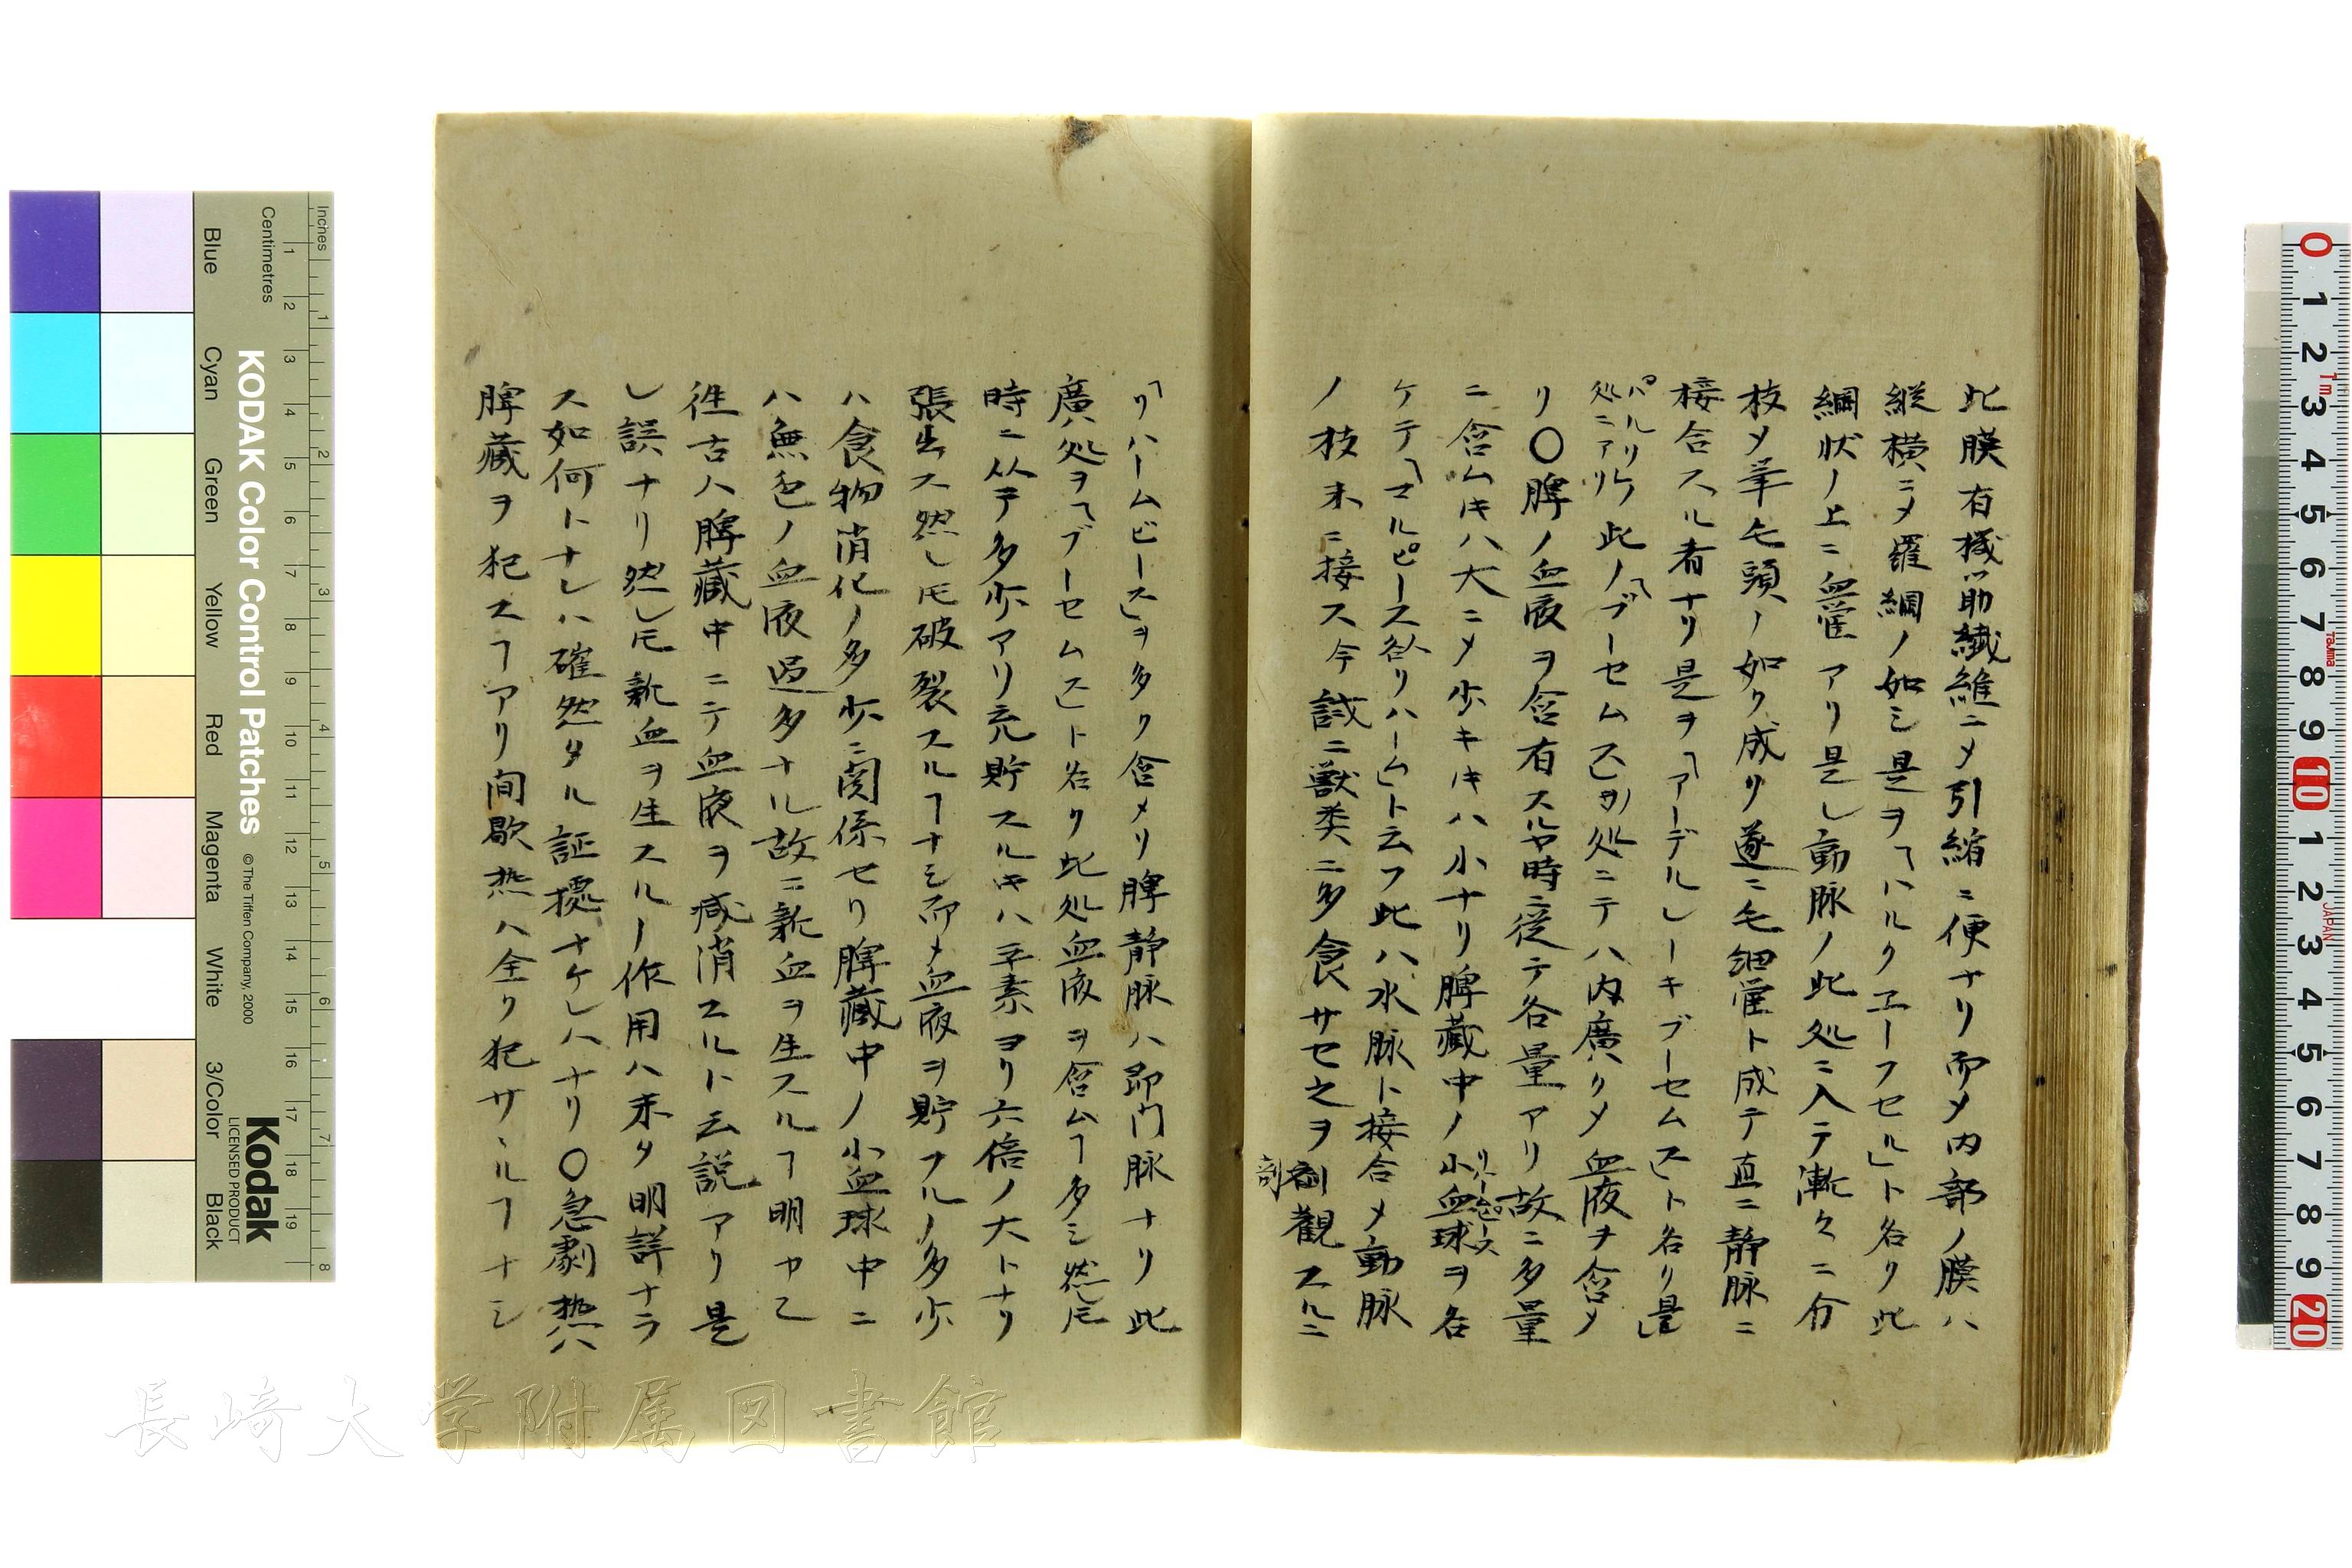 此膜有機筋繊維ニメ引縮ニ便ナリ而メ内部ノ膜ハ
縦横ニメ羅網ノ如シ是ヲ「ハルクエーフセル」ト名リ此
網状ノ上ニ血管アリ是レ動脉ノ此処ニ入テ漸々ニ分
枝メ羊毛頭ノ如ク成リ遂ニ毛細管ト成テ直ニ静脉ニ
接合スル者ナリ是ヲ「アーデルレーキブーセムス」ト名リ是レ
パルリケ
処ニアリ
此ノ「ブーセムス」ノ処ニテハ内廣クメ血液ヲ含メ
リ〇脾ノ血液ヲ含有スル時ニ従テ各量アリ故ニ多量
ニ含ムキハ大ニメ少キキハ小ナリ脾藏中ノ小血球ヲ名
リーピース
ケテ「マルピース リハーム」ト云フ此ハ水脉ト接合メ動脉
ノ枝末ニ接ス今試ニ獣类ニ多食サセ之ヲ剖觀スルニ
剖
「リハームビース」ヲ多ク含メリ脾静脉ハ即門脉ナリ此
廣処ヲ「ブーセムス」ト名ク此処血液ヲ含ムヿ多シ然𪜈
時ニ从テ多少アリ充貯スルキハ平素ヨリ六倍ノ大トナリ
張出ス然レ𪜈破裂スルヿナシ而メ血液ヲ貯フルノ多少
ハ食物消化ノ多少ニ関係セリ脾藏中ノ小血球中ニ
ハ無色ノ血液過多ナル故ニ新血ヲ生スルヿ明カニ
徃古ハ脾藏中ニテ血液ヲ減消スルト云説アリ是
レ誤ナリ然レ𪜈新血ヲ生スルノ作用ハ未タ明詳ナラ
ス如何トナレハ確然タル証據ナケレハナリ〇急劇熱ハ
脾藏ヲ犯スヿアリ間歇热ハ全ク犯サヽルヿナシ
KODAK Color Control Patches
© The Tiffen Company, 2000
Kodak
LICENSED PRODUCT
Inches
Centimetres
Blue
Cyan
Green
Yellow
Red
Magenta
White
3/Color
Black
長崎大学附属図書館